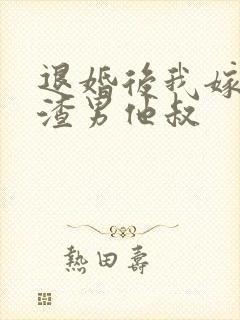 退婚後我嫁
渣男他叔
熱田壽